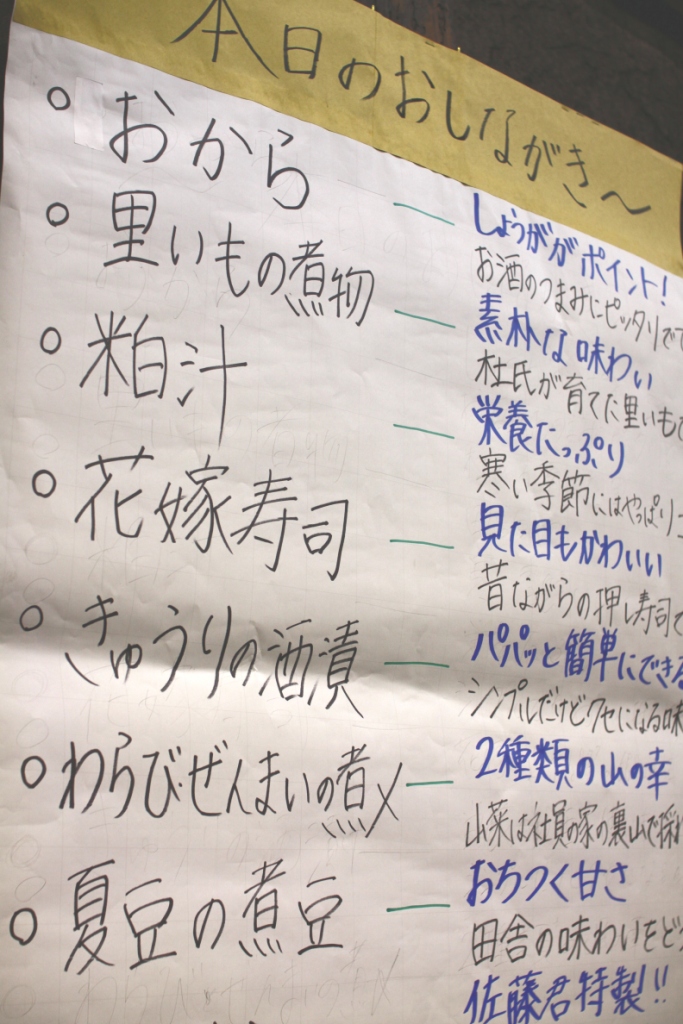 本日のおしながき～
○ おから
しょうががポイント!
お酒のつまみにピッタリで
○ 里いもの煮物
素朴な味わい
杜氏が育てた里いも
○ 粕汁
栄養たっぷり
寒い季節にはやっぱり
○ 花嫁寿司
見た目もかわいい
昔ながらの押し寿司で
○ きゅうりの酒漬
パパッと簡単にできる
シンプルだけどクセになる味
○ わらびぜんまいの煮〆
2種類の山の幸
山菜は社員の家の裏山で採
○ 夏豆の煮豆
おちつく甘さ
田舎の味わいをど
佐藤君特製!!